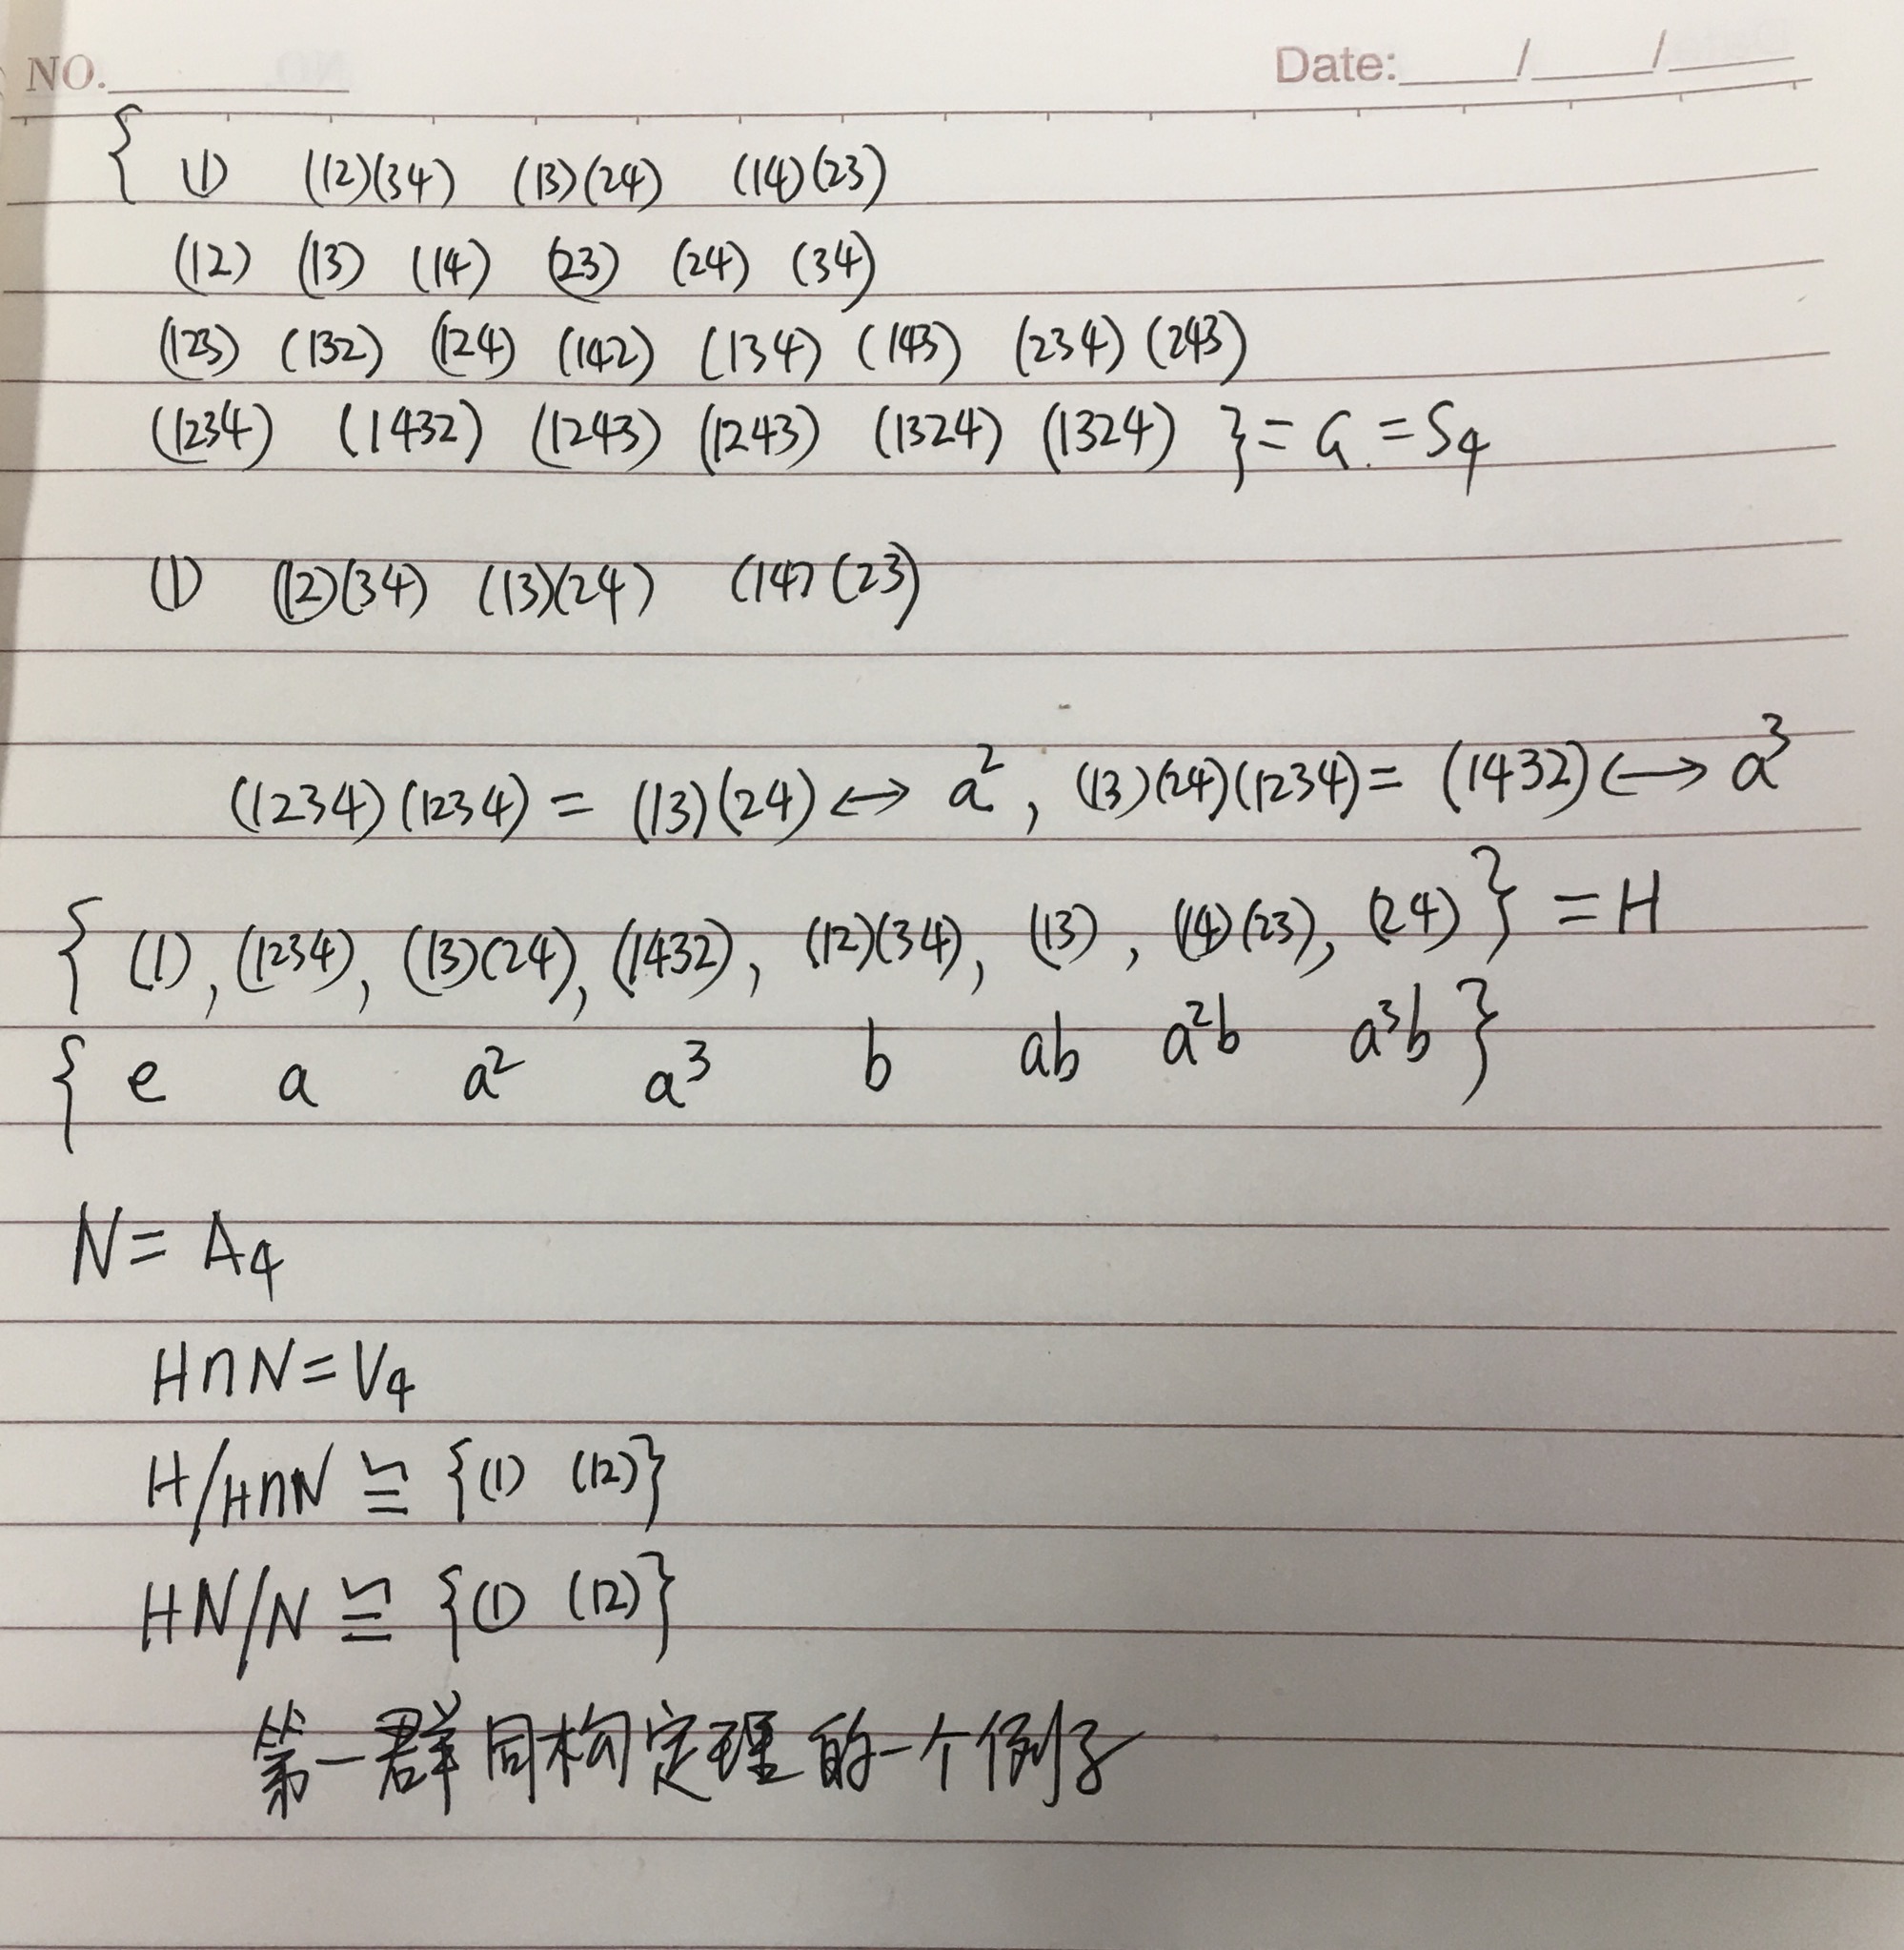 NO. Date: / /
{ (1) (12)(34) (13)(24) (14)(23)
(12) (13) (14) (23) (24) (34)
(123) (132) (124) (142) (134) (143) (234) (243)
(1234) (1432) (1243) (1243) (1324) (1324) } = G = S₄
(1) (12)(34) (13)(24) (14)(23)
(1234)(1234) = (13)(24) ↔ a², (13)(24)(1234) = (1432) ↔ a³
{ (1), (1234), (13)(24), (1432), (12)(34), (13), (14)(23), (24) } = H
{ e a a² a³ b ab a²b a³b }
N = A₄
H∩N = V₄
H/H∩N ≅ {(1) (12)}
HN/N ≅ {(1) (12)}
第一群同构定理的一个例子